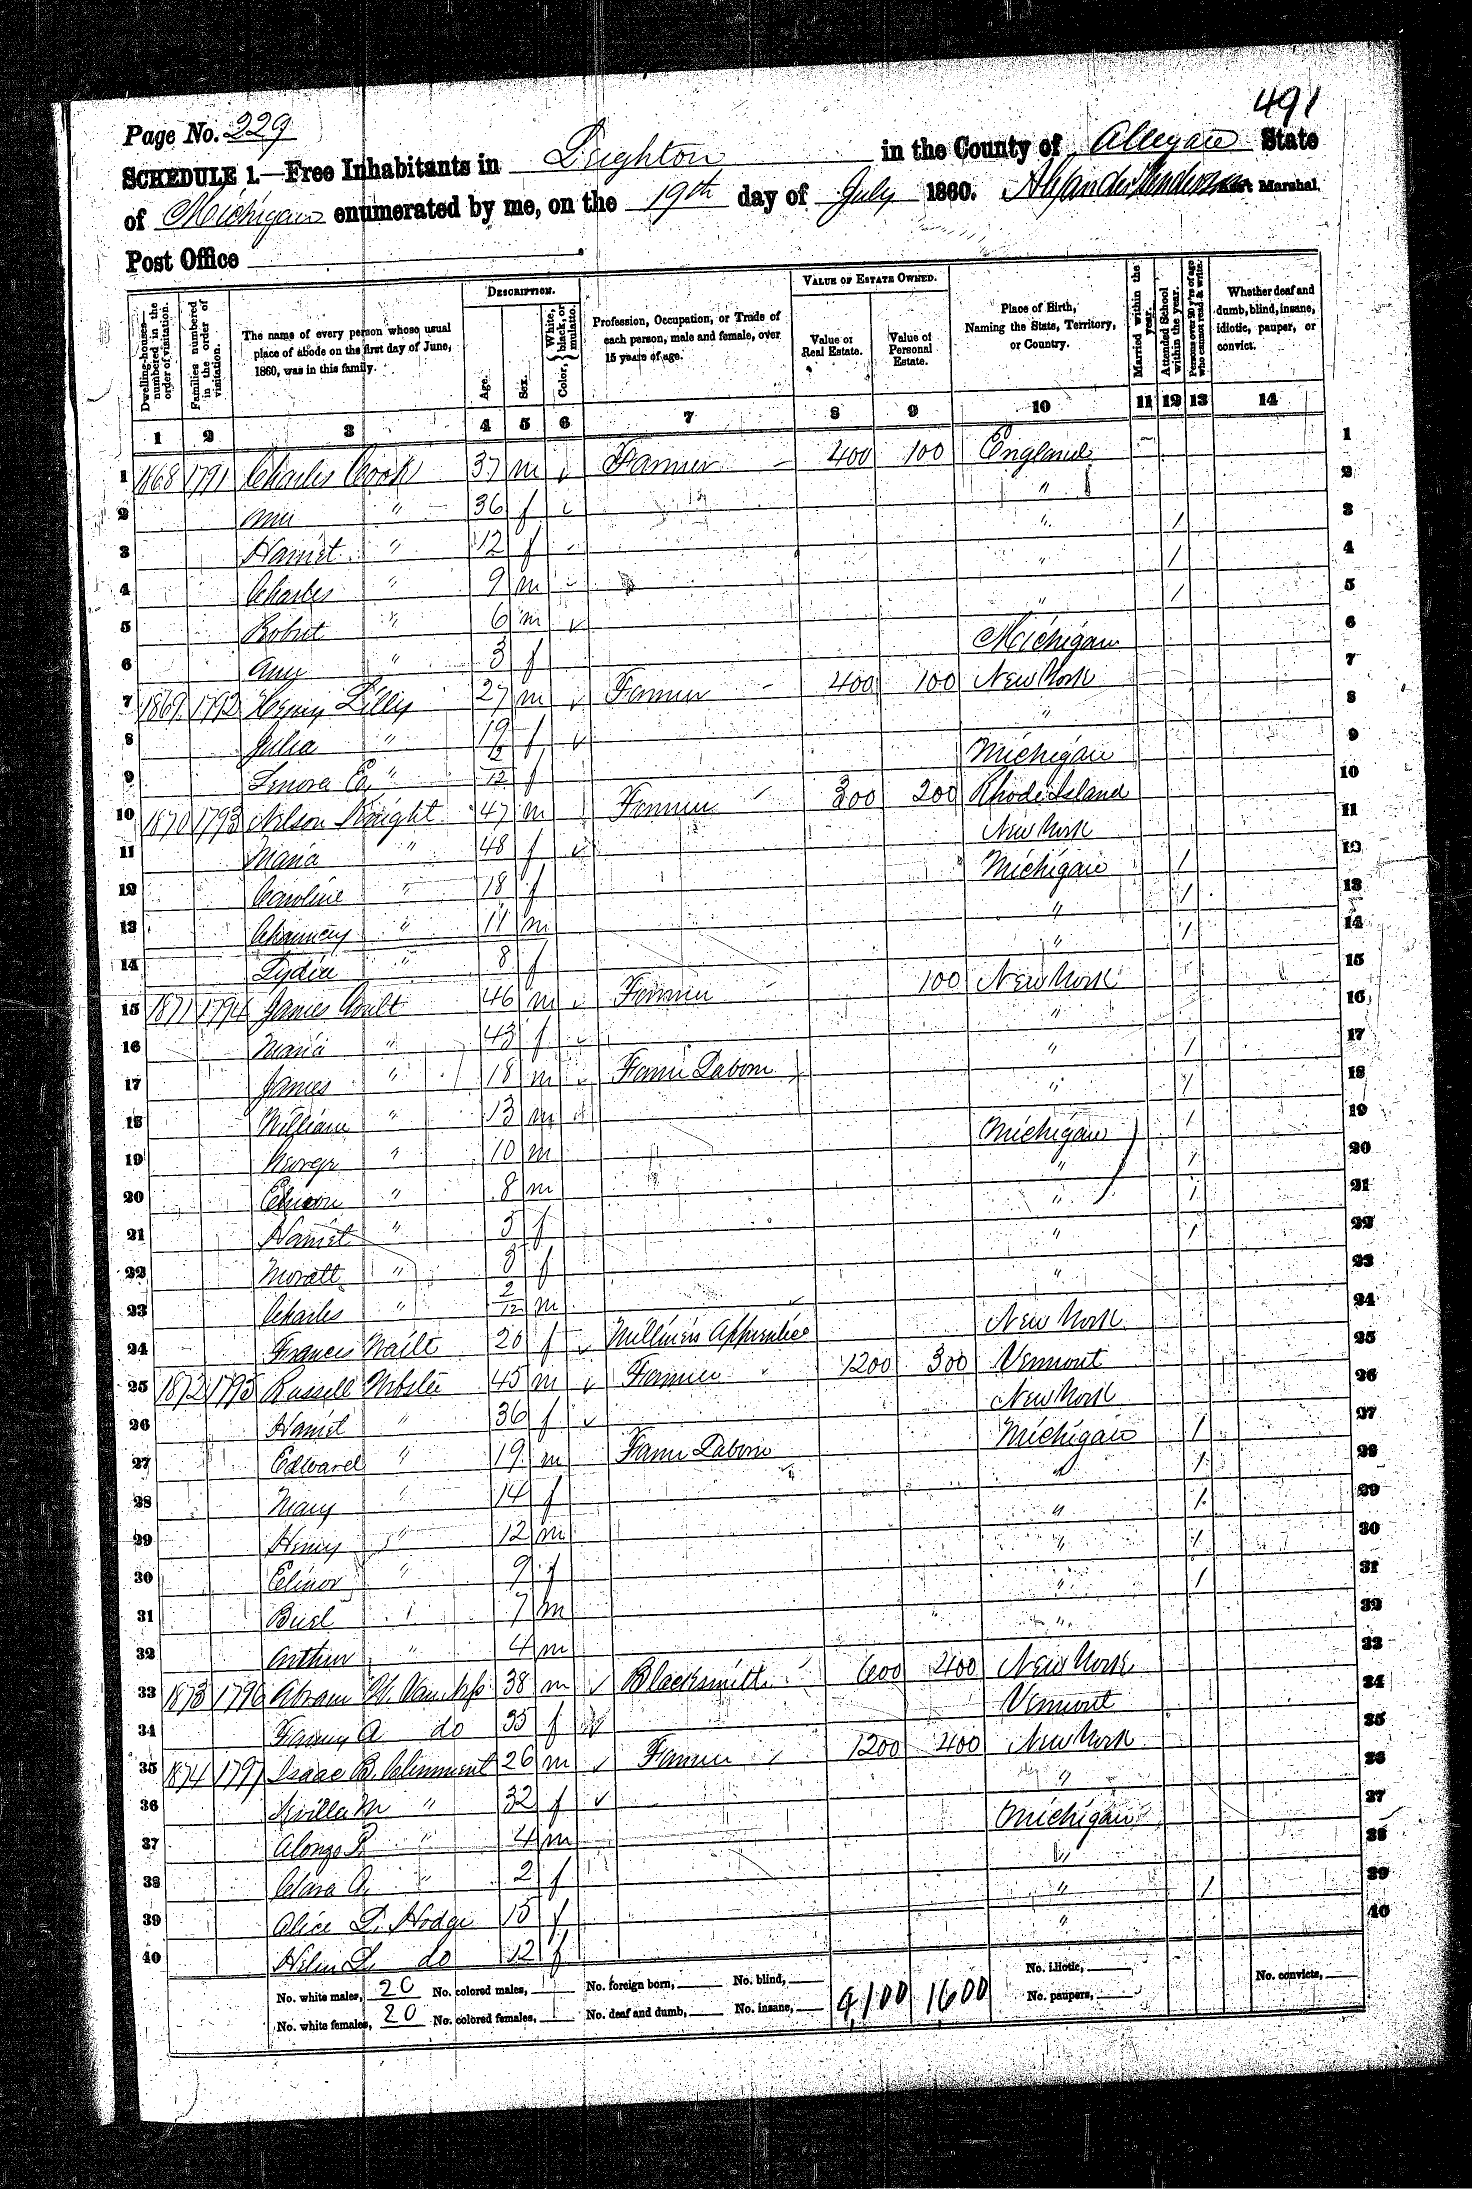 491
Page No. 229
SCHEDULE 1.—Free Inhabitants in Leighton in the County of Allegan State
of Michigan enumerated by me, on the 19th day of July 1860. Ass't Marshal.
Post Office
Dwelling-houses—numbered in the order of visitation. Families numbered in the order of visitation. The name of every person whose usual place of abode on the first day of June, 1860, was in this family. DESCRIPTION. Age. Sex. Color, { White, black, or mulatto. Profession, Occupation, or Trade of each person, male and female, over 15 years of age. VALUE OF ESTATE OWNED. Value of Real Estate. Value of Personal Estate. Place of Birth, Naming the State, Territory, or Country. Married within the year. Attended School within the year. Persons over 20 y'rs of age who cannot read & write. Whether deaf and dumb, blind, insane, idiotic, pauper, or convict.
1 2 3 4 5 6 7 8 9 10 11 12 13 14
1 1868 1791 Charles Cook 37 m Farmer 400 100 England 1
2 " 36 f " 2
3 Harriet " 12 f " 1 3
4 Charles " 9 m " 1 4
5 Robert " 6 m " 1 5
6 Ann " 3 f Michigan 6
7 1869 1792 Henry Lilly 27 m Farmer 400 100 New York 7
8 Julia " 19 f " 8
9 E. " 6/12 f Michigan 9
10 1870 1793 Nelson Knight 47 m Farmer 300 200 Rhode Island 10
11 Maria " 48 f New York 11
12 Caroline " 18 f Michigan 1 12
13 Chauncey " 11 m " 1 13
14 Lydia " 8 f " 1 14
15 1871 1794 James Coult 46 m Farmer 100 New York 15
16 Maria " 43 f " 16
17 James " 18 m Farm Laborer " 1 17
18 William " 13 m " 1 18
19 George " 10 m Michigan 1 19
20 " 8 m " 1 20
21 Harriet " 5 f " 1 21
22 " 3 f " 1 22
23 Charles " 2/12 m " 23
24 Frances Waite 20 f Milliners Apprentice New York 24
25 1872 1795 Russell Webster 45 m Farmer 1200 300 Vermont 25
26 Harriet " 36 f New York 26
27 Edward " 19 m Farm Laborer Michigan 1 27
28 Mary " 14 f " 1 28
29 Henry " 12 m " 1 29
30 Elinor " 9 f " 1 30
31 Buel " 7 m " 1 31
32 Arthur " 4 m " 32
33 1873 1796 Abram 38 m Blacksmith 600 400 New York 33
34 Fanny A do 35 f Vermont 34
35 1874 1797 Isaac B. Clemment 26 m Farmer 1200 400 New York 35
36 M " 32 f " 36
37 Alonzo B " 4 m Michigan 37
38 Clara A. " 2 f " 38
39 Alice L. Hodge 15 f " 1 39
40 Helen L. do 12 f " 40
No. white males, 20 No. colored males, No. foreign born, No. blind, 4,100 1600 No. idiotic, No. convicts,
No. white females, 20 No. colored females, No. deaf and dumb, No. insane, No. paupers,